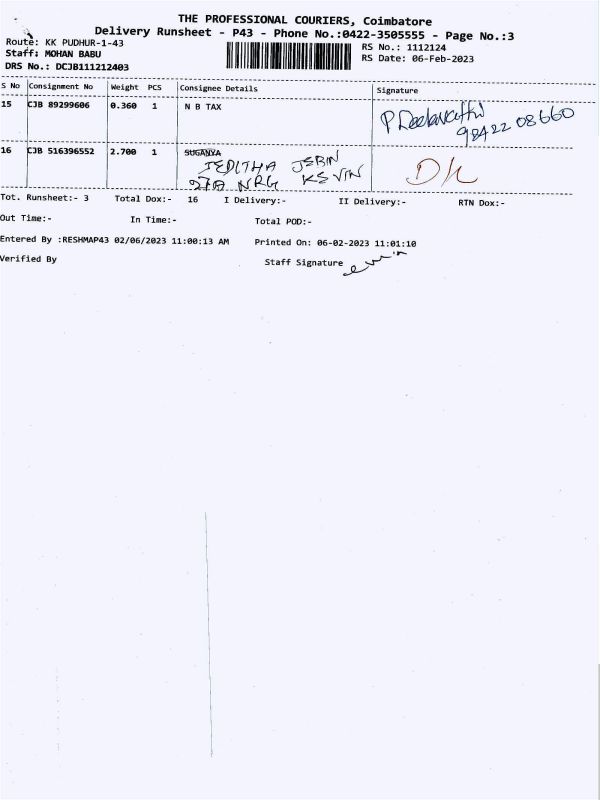 THE PROFESSIONAL COURIERS, Coimbatore
Delivery Runsheet - P43 - Phone No.:0422-3505555 - Page No.:3
Route: KK PUDHUR-1-43
RS No.: 1112124
Staff: MOHAN BABU
RS Date: 06-Feb-2023
DRS No.: DCJB111212403
S No Consignment No Weight PCS Consignee Details Signature
15 CJB 89299606 0.360 1 N B TAX
98422 08660
16 CJB 516396552 2.700 1 SUGANYA
JEBIN
NRG KEVIN
Tot. Runsheet:- 3 Total Dox:- 16 I Delivery:- II Delivery:- RTN Dox:-
Out Time:- In Time:- Total POD:-
Entered By :RESHMAP43 02/06/2023 11:00:13 AM Printed On: 06-02-2023 11:01:10
Verified By Staff Signature